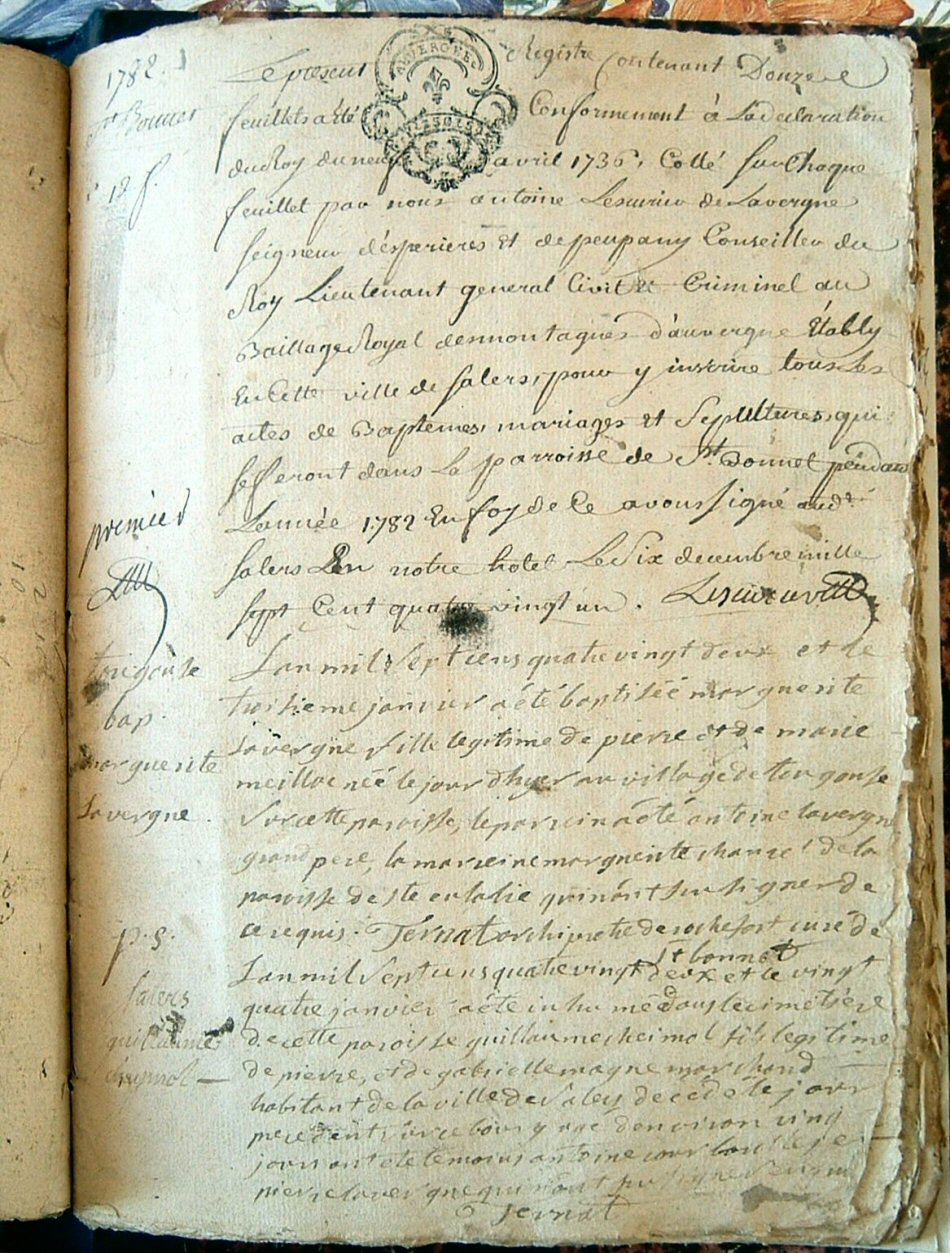 1782.
St Bonnet
12 f.
Le present Registre Contenant Douze
feuillets a été Conformement à La declaration
du Roy du neuf avril 1736, Cotté sur Chaque
feuillet par nous antoine Lesurier de Lavergne
seigneur d'esperieres Et de peupany Conseiller du
Roy Lieutenant general Civil & Criminel au
Baillage Royal des montagnes d'auvergne Etably
En Cette ville de salers, pour y inscrire tous Les
actes de Baptemes, mariages et Sepultures, qui
se feront dans La parroisse de St. Bonnet pendant
L'année 1782 En foy de Ce avons signé aud.
salers En notre hotel Le Six decembre mille
sept Cent quatre vingt un.
premier
tougouse
bap.
marguerite
Lavergne
L'an mil Sept Cens quatre vingt deux et le
troisieme janvier a été baptisée marguerite
Lavergne fille legitime de pierre et de marie
meillac née le jour d'hyer au village de tougouse
sur cette paroisse, le parein a été antoine lavergne
grand pere, la mareine marguerite chanset de la
paroisse de ste eulalie qui n'ont su signer de
ce requis. Jernat archiprêtre de rochefort curé de
St bonnet
p. s.
Salers
guillaume
cheimol
L'an mil Sept Cens quatre vingt deux et le vingt
quatre janvier a été inhumé dans le cimetière
de cette paroisse guillaume cheimol fils legitime
de pierre, et de gabrielle magne marchand
habitant de la ville de Salers decedé le jour
precedent sur ce bourg agé d'environ vingt
jours ont été temoins antoine
pierre lavergne qui n'ont su signer
Jernat